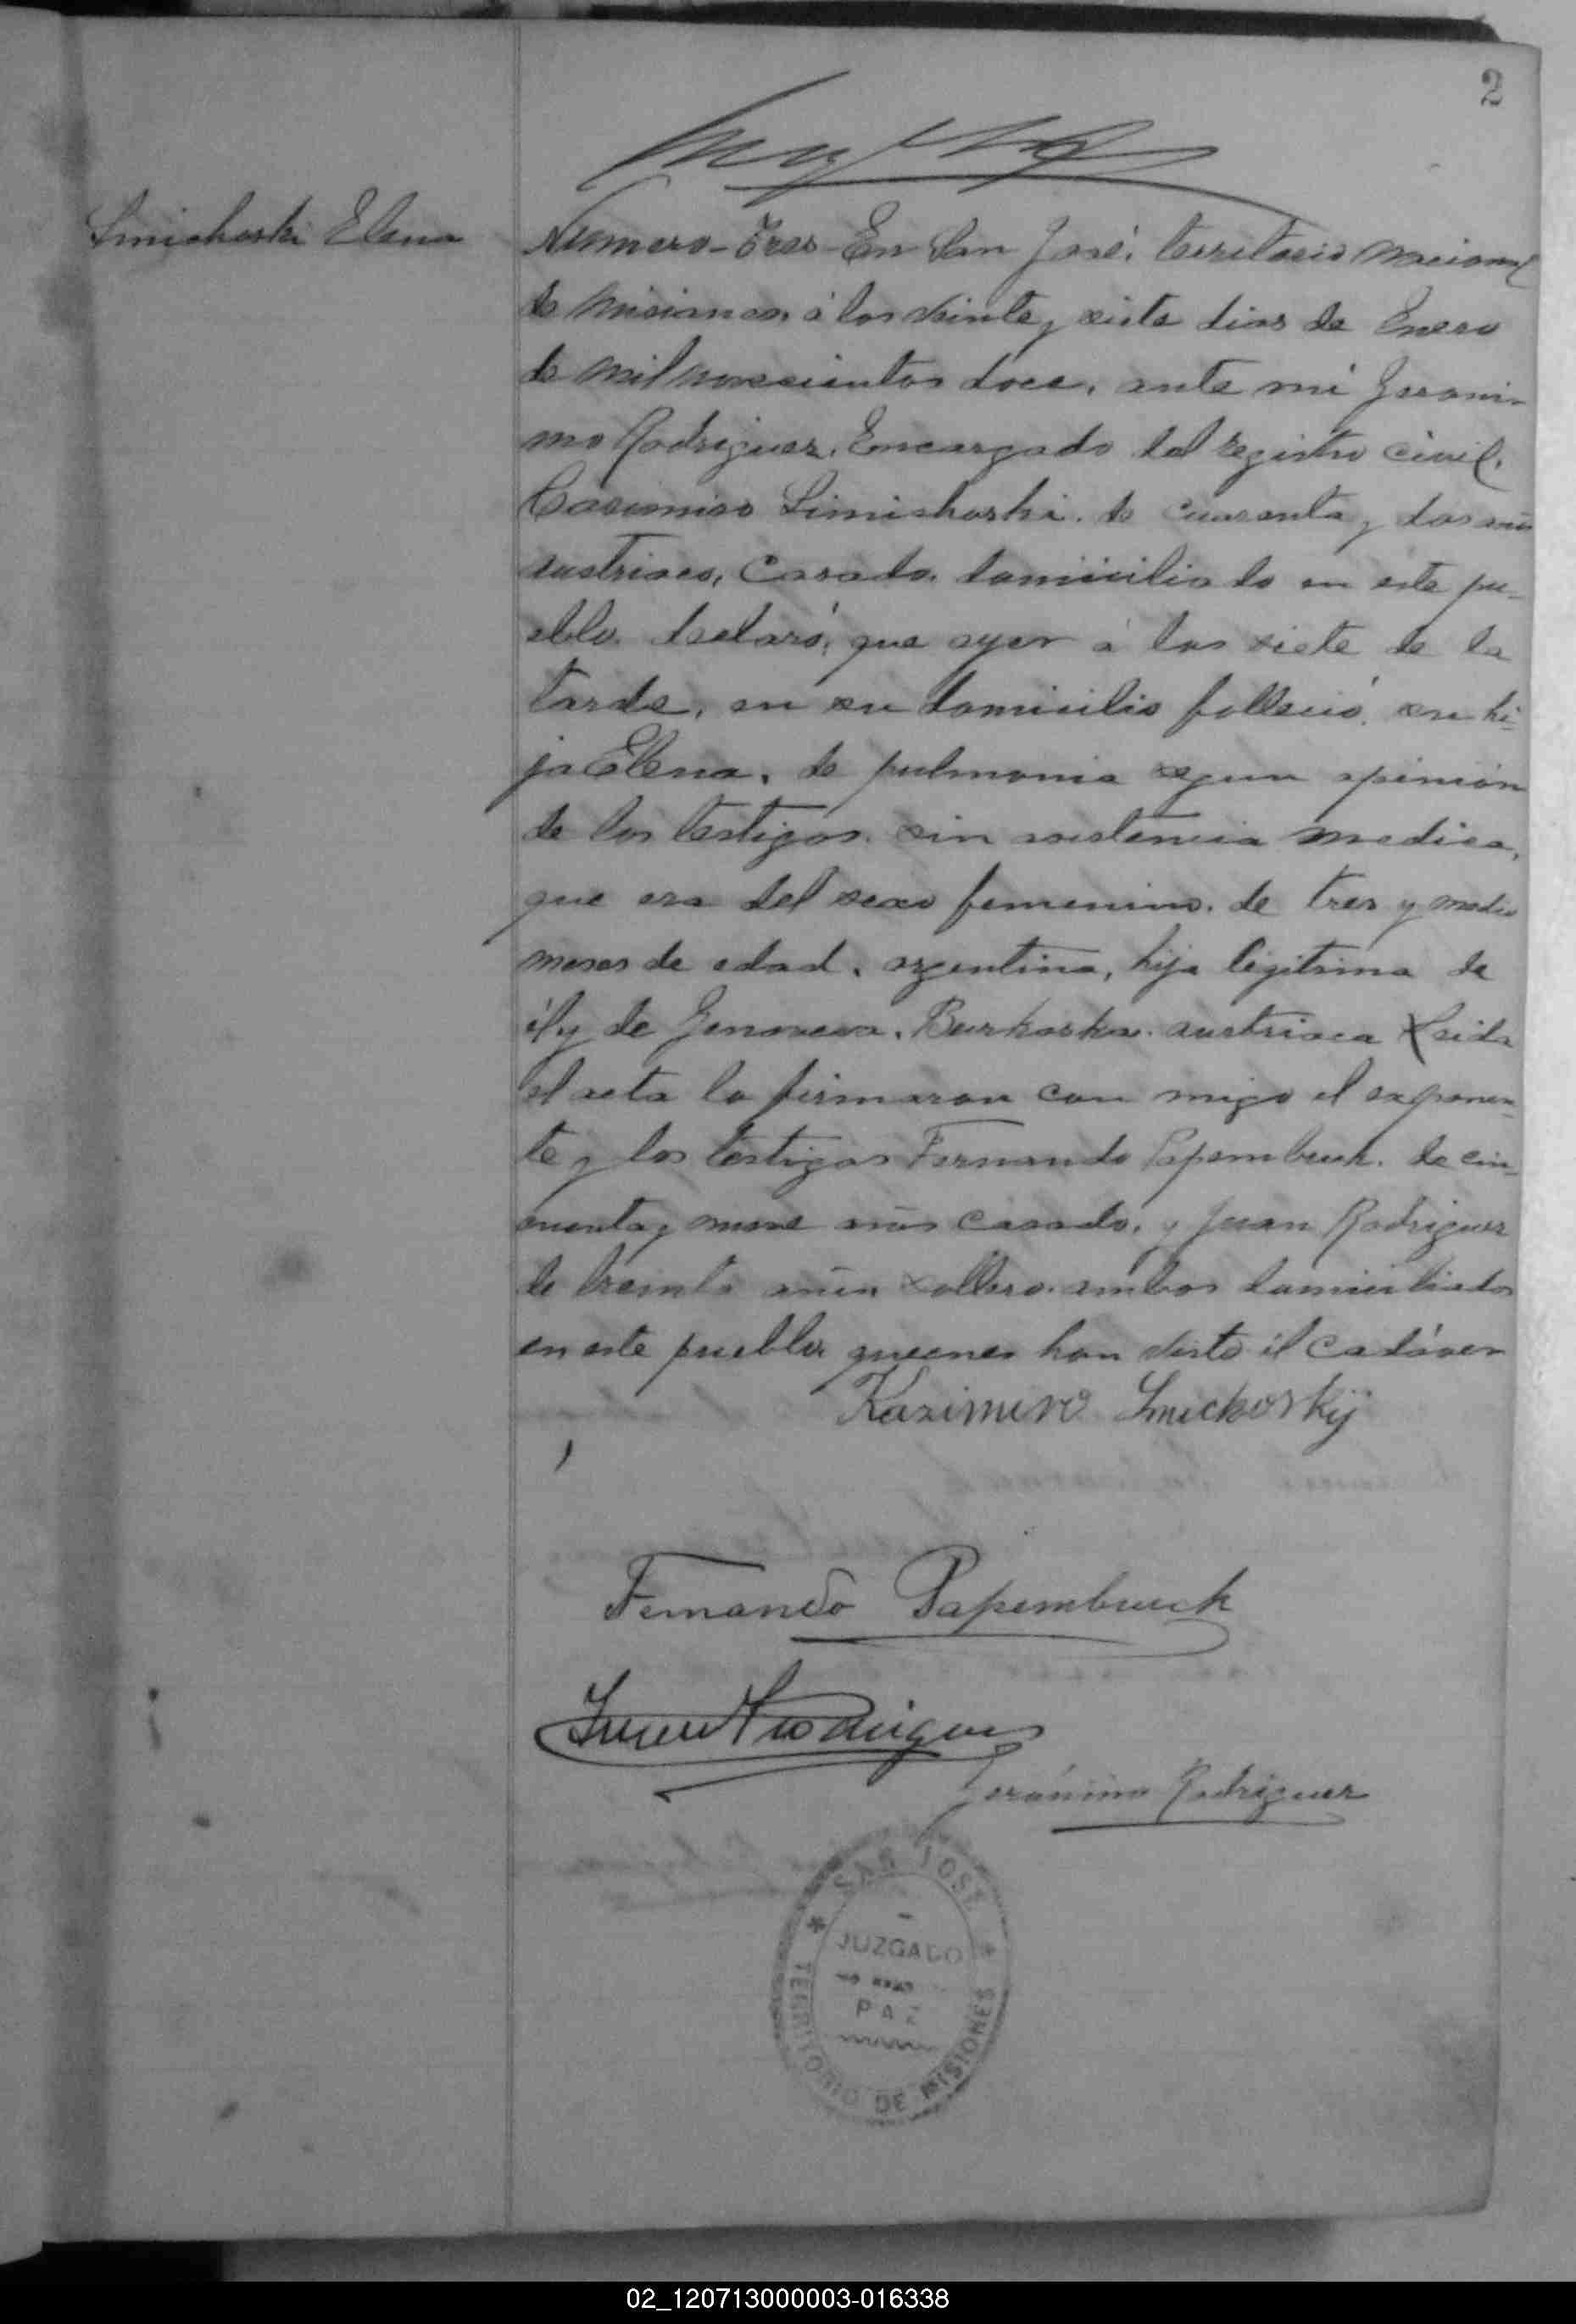 2
Smichoski Elena
Numero-Tres-En San José, territorio nacional
de Misiones, á los veinte y siete dias de Enero
de mil novecientos doce, ante mi Geroni-
mo Rodriguez, Encargado del registro civil,
Casimiro Simishoski, de cuarenta y dos años
austriaco, Casado, domiciliado en este pu-
eblo declaró, que ayer á las siete de la
tarde, en su domicilio falleció, su hi-
ja Elena, de pulmonia segun opinion
de los testigos, sin asistencia medica,
que era del sexo femenino, de tres y medio
meses de edad, argentina, hija legitima de
él y de Genoveva, Burkoska, austriaca Leida
el acta la firmaron con migo el exponen-
te y los testigos Fernando Papembruck, de cin-
cuenta y nueve años Casado, y Juan Rodriguez
de treinta años soltero, ambos domiciliados
en este pueblo queenes han visto él Cadáver
Kazimiro Smickoskij
Fernando Papembruck
Juan Rodrigues
Gerónimo Rodriguez
SAN JOSE
JUZGADO
PAZ
TERRITORIO DE MISIONES
02_120713000003-016338